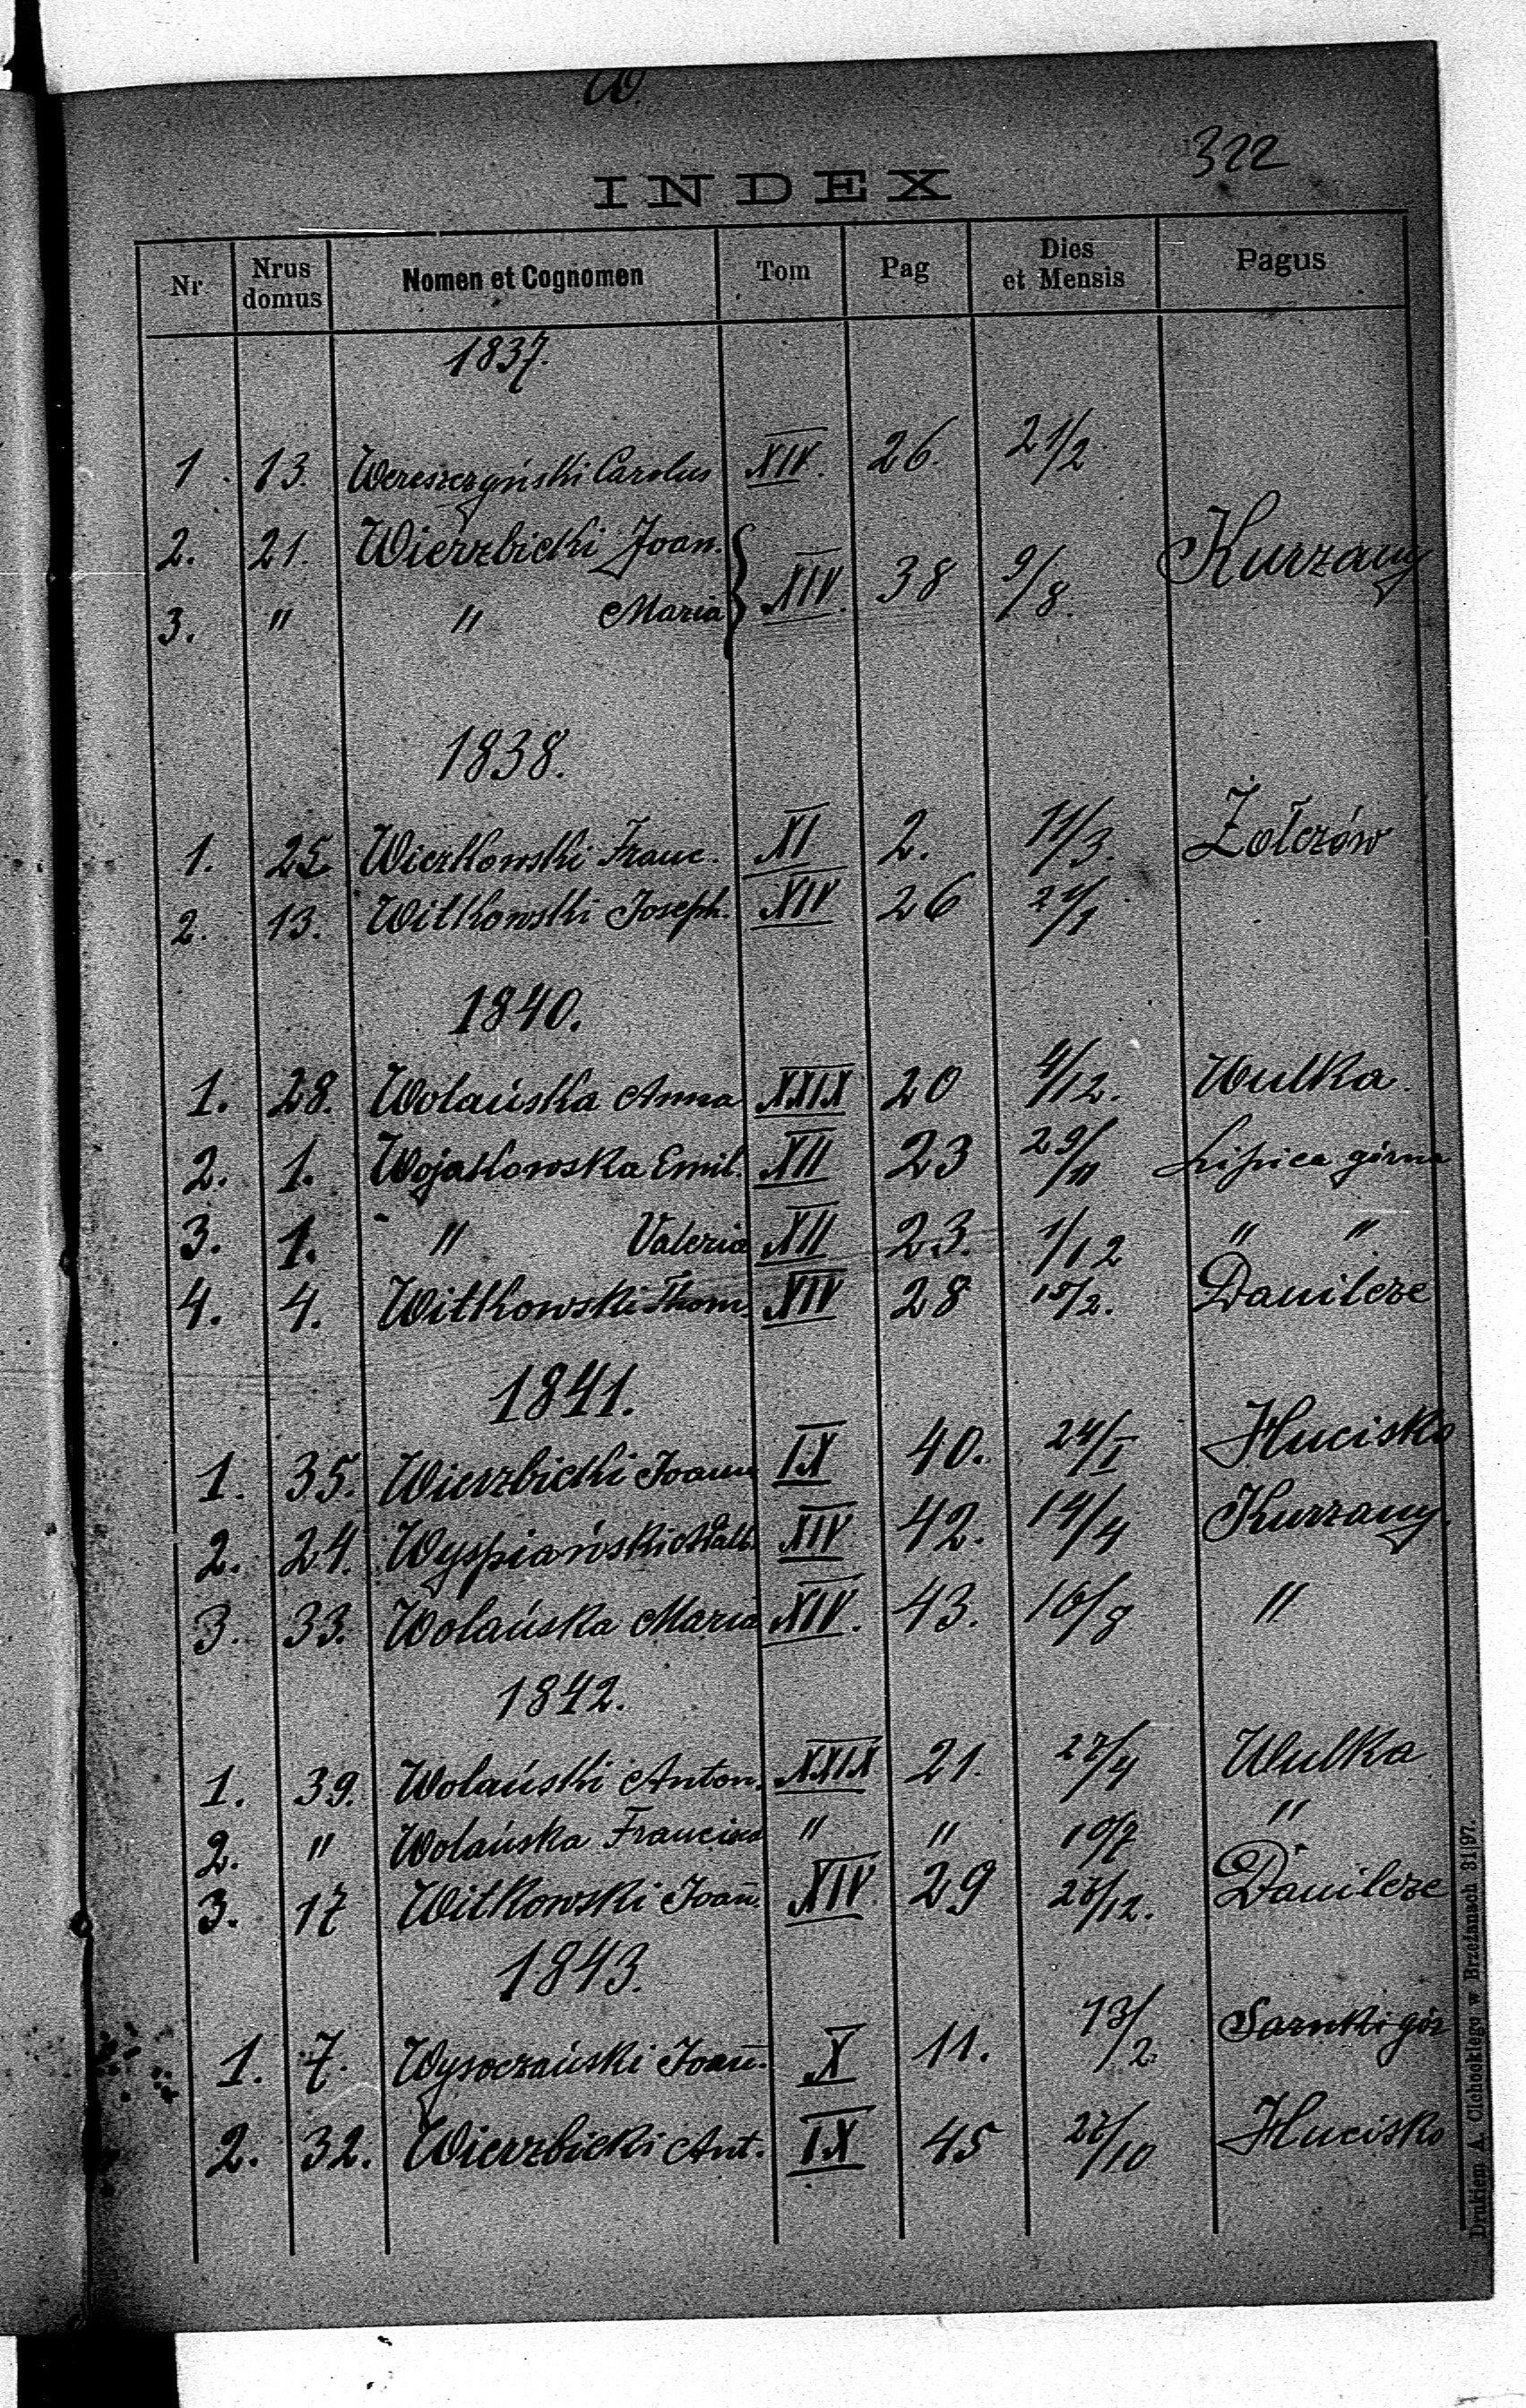 W.
322
INDEX
Nr Nrus domus Nomen et Cognomen Tom Pag Dies et Mensis Pagus
1837.
1 13. Wereszczyński Carolus XIV. 26. 21/2
2. 21. Wierzbicki Joan. XIV. 38 9/8. Kurzany
3. " " Maria
1838.
1. 25 Wiczkowski Franc. XI 2. 11/3. Żołczów
2. 13. Witkowski Joseph. XIV 26 21/1
1840.
1. 28. Wolańska Anna XXIX 20 4/12. Wulka.
2. 1. Wojakowska Emil. XII 23 29/11 Lipica górna
3. 1. " Valeria XII 23. 1/12 " "
4. 4. Witkowski Thom. XIV 28 15/2. Danilcze
1841.
1. 35. Wierzbicki Joann IX 40. 24/I Hucisko
2. 24. Wyspiański Adalb. XIV 42. 14/4 Kurzany.
3. 33. Wolańska Maria XIV. 43. 16/8 "
1842.
1. 39. Wolański Anton. XXIX 21. 27/4 Wulka
2. " Wolańska Francisca " " 10/7 "
3. 17 Witkowski Joan̄. XIV 29 /12. Danilcze
1843.
1. 7. Wysoczański Joan̄. X 11. 13/2. Sarnki gór
2. 32. Wierzbicki Ant. IX 45 27/10 Hucisko
Drukiem A. Cichockiego w Brzeżanach 31|97.